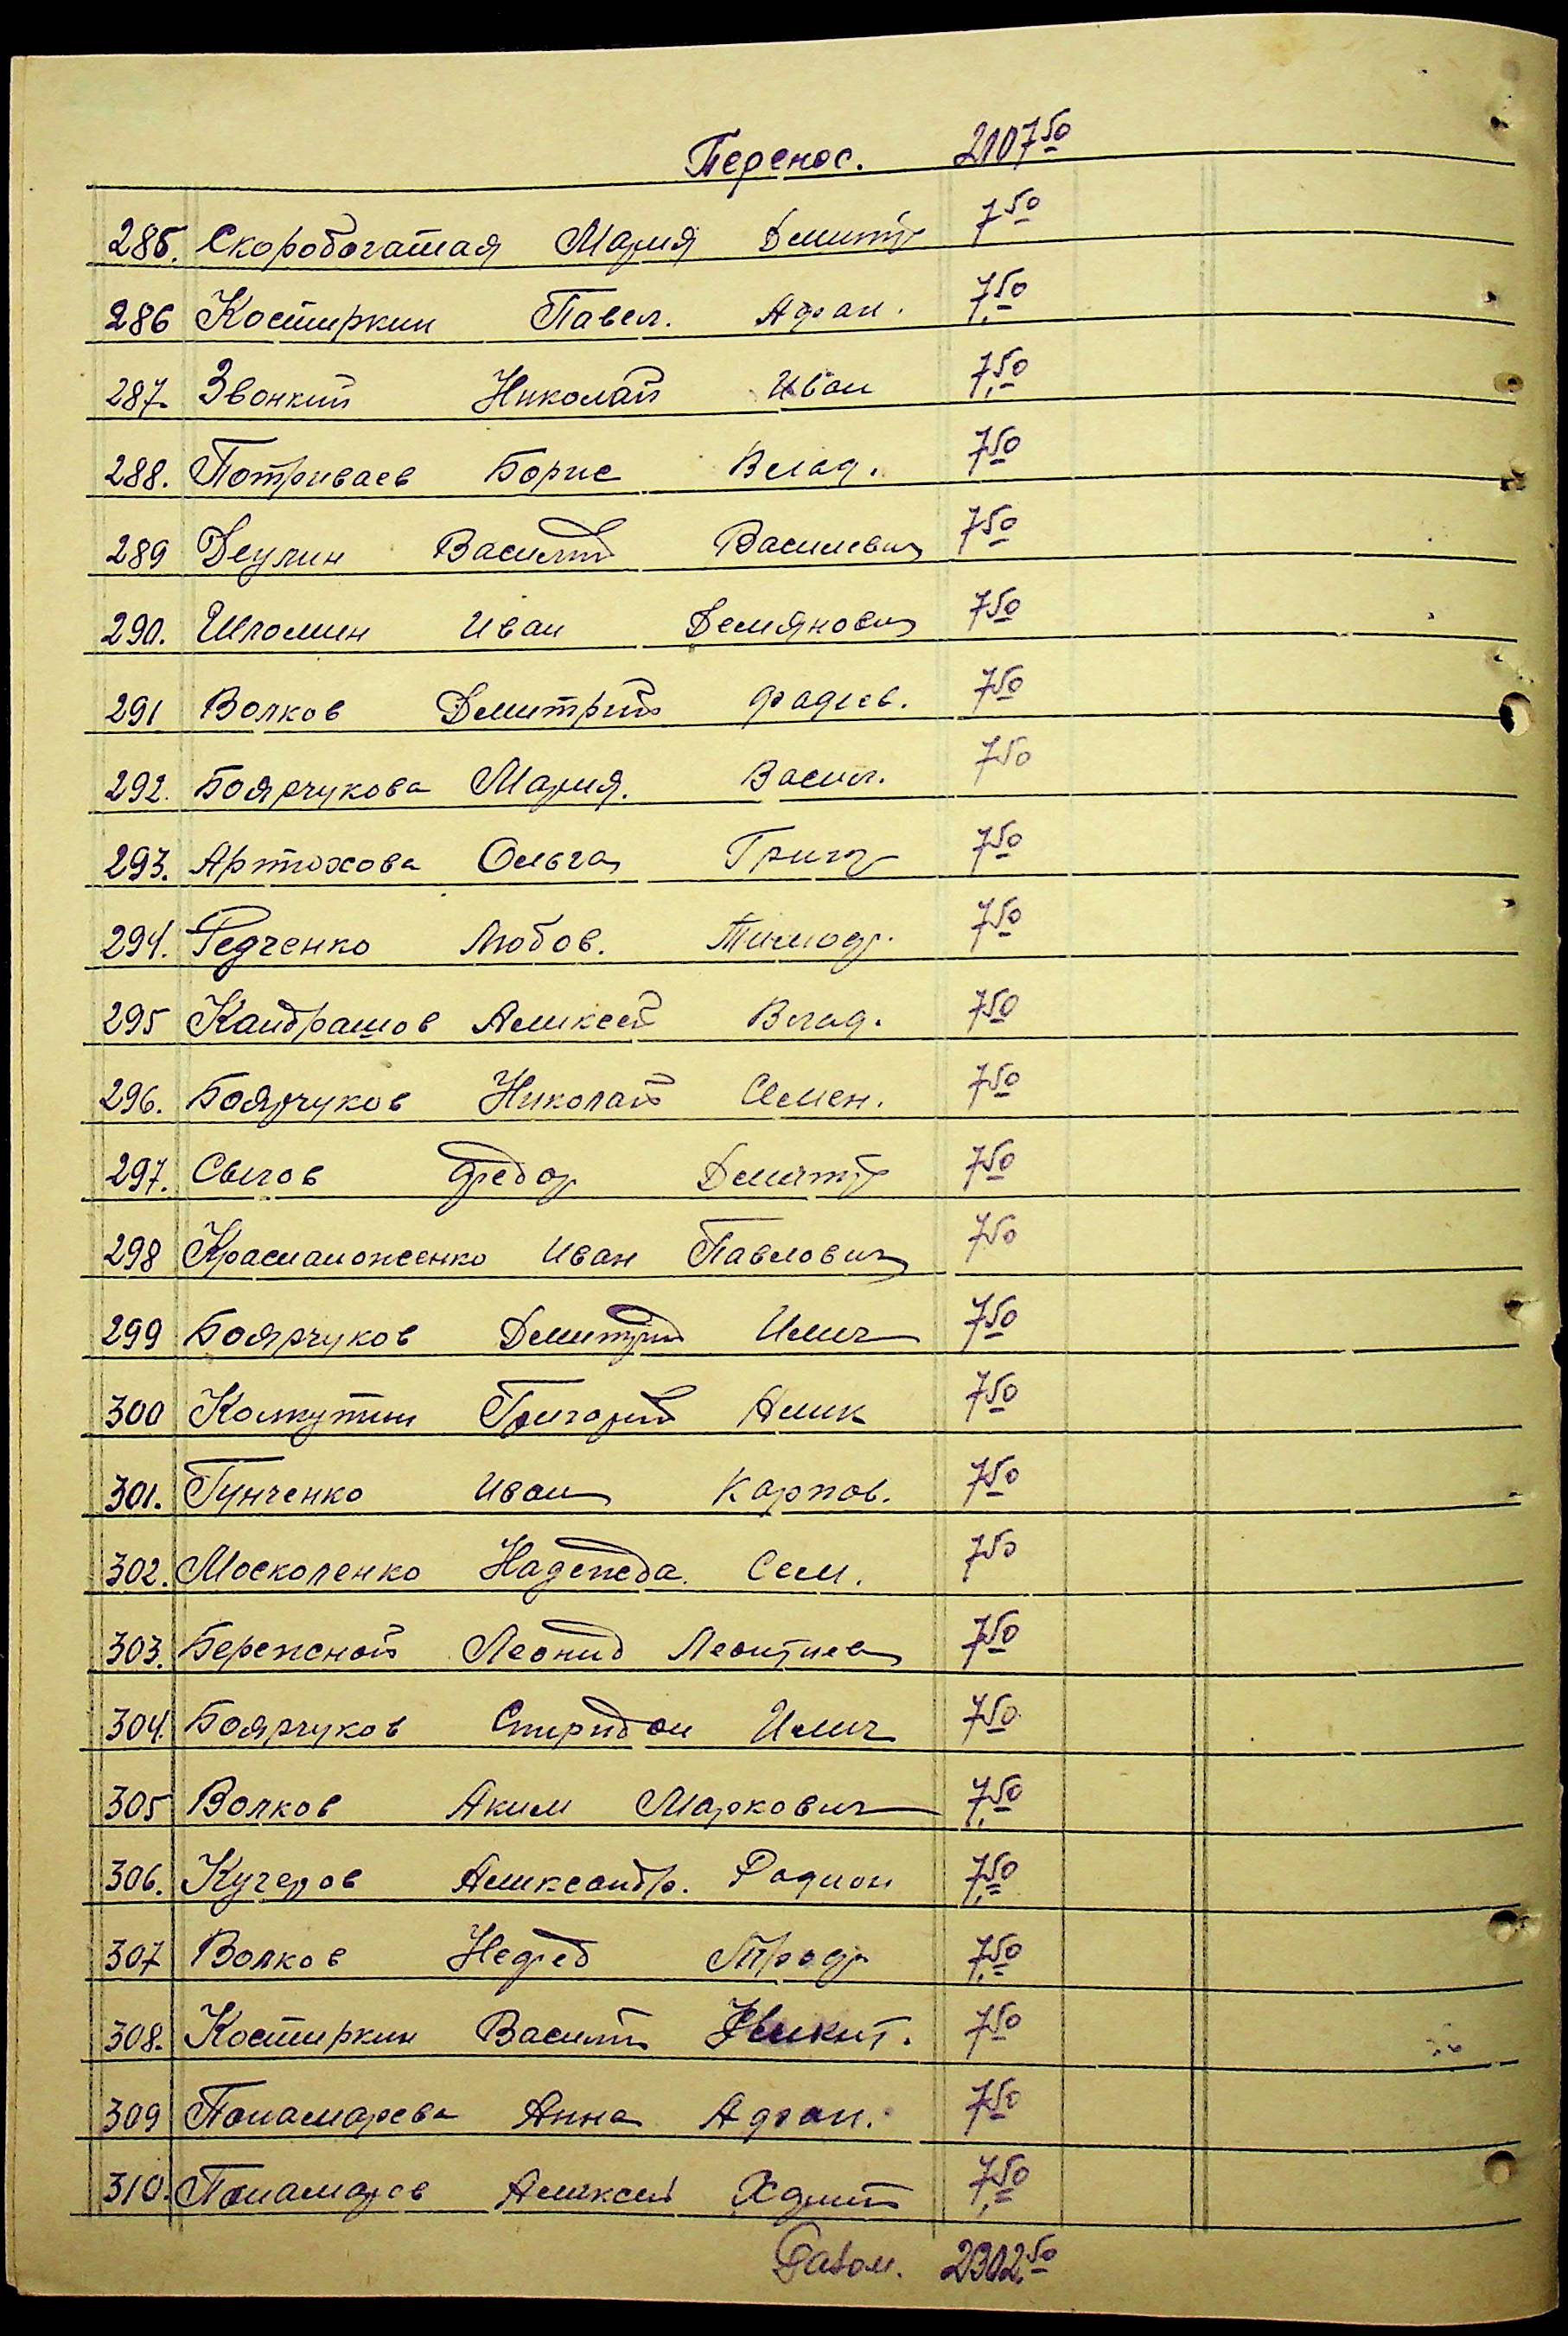 Перенос. 2107 50
285. Скоробогатая Мария Дмитр 7 50
286 Костиркин Павел. Афан. 7,50
287. Звонкий Николай Иван 7,50
288. Потриваев Борис Влад. 7 50
289 Деулин Василий Василевич 7 50
290. Шломин Иван Демянович 7 50
291 Волков Дмитрий Фадеев. 7 50
292. Боярчукова Мария. Васил. 7 50
293. Артюхова Ольга Григ 7 50
294. Редченко Любов. Тимоф. 7 50
295 Кандрашов Алексей Влад. 7 50
296. Боярчуков Николай Семен. 7 50
297. Сыгов Федор Дмитр 7 50
298 Иван Павлович 7 50
299 Боярчуков Дмитрий Илич 7 50
300 Колтутин Григорий Алек 7 50
301. Гунченко Иван Карпов. 7 50
302. Москоленко Надежда. Сем. 7 50
303. Бережной Леонид Леонтиев 7 50
304. Боярчуков Спиридон Илич 7 50
305 Волков Аким Маркович 7,50
306. Кучеров Александр. Родион 7,50
307 Волков Нефед Троф 7,50
308. Костиркин Василий Никит. 7 50
309 Понамарева Анна Афан. 7 50
310. Понамарев Алексей 7,50
Разом. 2302,50